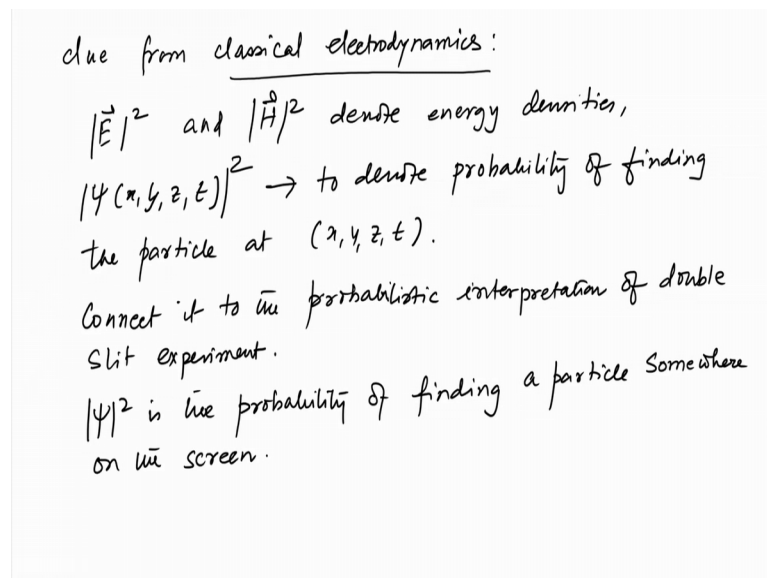 clue from classical electrodynamics:
|E⃗|² and |H⃗|² denote energy densities,
|Ψ(x,y,z,t)|² → to denote probability of finding
the particle at (x,y,z,t).
Connect it to the probabilistic interpretation of double
slit experiment.
|Ψ|² is the probability of finding a particle somewhere
on the screen.